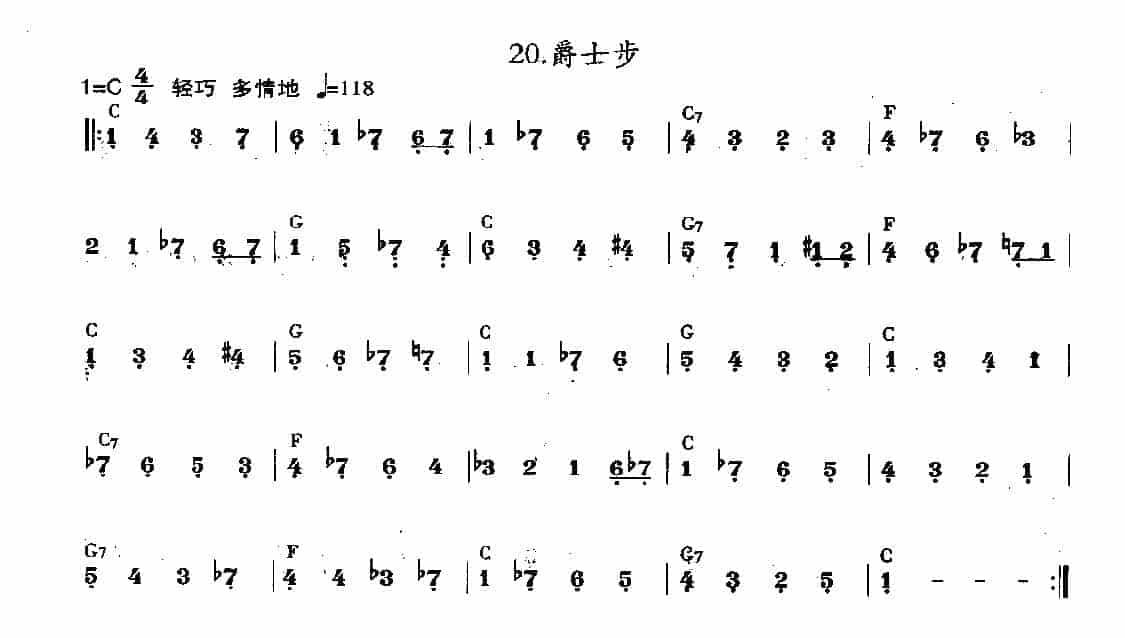 20.爵士步
1=C 4/4 轻巧 多情地 ♩=118
C C7 F
‖: 1 4 3 7 | 6 1 ♭7 6 7 | 1 ♭7 6 5 | 4 3 2 3 | 4 ♭7 6 ♭3 |
G C G7 F
2 1 ♭7 6 7 | 1 5 ♭7 4 | 6 3 4 #4 | 5 7 1 #1 2 | 4 6 ♭7 ♮7 1 |
C G C G C
1 3 4 #4 | 5 6 ♭7 ♮7 | 1 1 ♭7 6 | 5 4 3 2 | 1 3 4 1 |
C7 F C
♭7 6 5 3 | 4 ♭7 6 4 | ♭3 2 1 6 ♭7 | 1 ♭7 6 5 | 4 3 2 1 |
G7 F C G7 C
5 4 3 ♭7 | 4 4 ♭3 ♭7 | 1 ♭7 6 5 | 4 3 2 5 | 1 - - - :‖